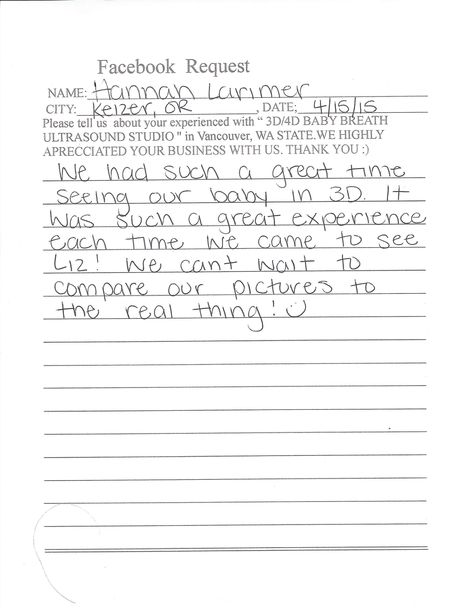 Facebook Request
NAME: Hannah Larimer
CITY: Keizer, OR , DATE: 4/15/15
Please tell us about your experienced with " 3D/4D BABY BREATH
ULTRASOUND STUDIO " in Vancouver, WA STATE.WE HIGHLY
APRECCIATED YOUR BUSINESS WITH US. THANK YOU :)
We had such a great time
seeing our baby in 3D. It
was such a great experience
each time we came to see
Liz! We cant wait to
compare our pictures to
the real thing! :)